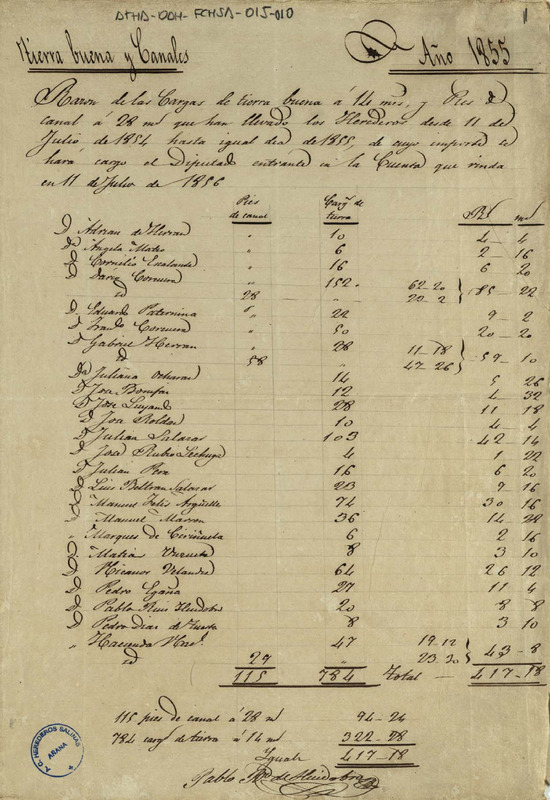 ATHA-DAH-FCHSA-015-010
1
Tierra buena y Canales
Año 1855
Razon de las Cargas de tierra buena á 14 mrs, y Pies de
canal á 28 mrs que han llevado los Herederos desde 11 de
Julio de 1854 hasta igual dia de 1855, de cuyo importe se
hara cargo el Diputado entrante en la Cuenta que rinda
en 11 de Julio de 1856
Pies de canal Cargs de tierra Rs mrs
D Adrian de Herran " 10 4-4
Da Angela Mateo " 6 2-16
D Cornelio " 16 6 20
D Dario Corcuera " 152 62-20
id 28 " 22-2 } 85-22
D Eduardo Paternina " 22 9-2
D Franco Corcuera " 50 20-20
D Gabriel Herran " 28 11-18
id 58 " 47-26 } 59-10
Da Juliana 14 5 26
D Jose Bonifaz 12 4 32
D Jose Luyando 28 11 18
D Jose Roldan 10 4-4
D Julian Salazar 103 42-14
D José Rubio Lechuga 4 1 22
D Julian 16 6 20
D Luis Beltran Salazar 23 9 16
D Manuel Felix Arguelles 74 30 16
D Manuel Marron 36 14 28
" Marques de Ciriñuela 6 2 16
D Matia 8 3 10
D Nicanor Velandia 64 26 12
D Pedro Egaña 27 11 4
D Pablo Ruiz Huidobro 20 8 8
D Pedro Diaz de 8 3 10
" Hacienda Nacl 47 19-12
id 29 " 23-30 } 43-8
115 784 Total 417-18
115 pies de canal á 28 mrs 94-24
784 cargs de tierra á 14 mrs 322-28
Iguals 417-18
Pablo Rz de Huidobro
A.C. HEREDEROS SALINAS
AÑANA